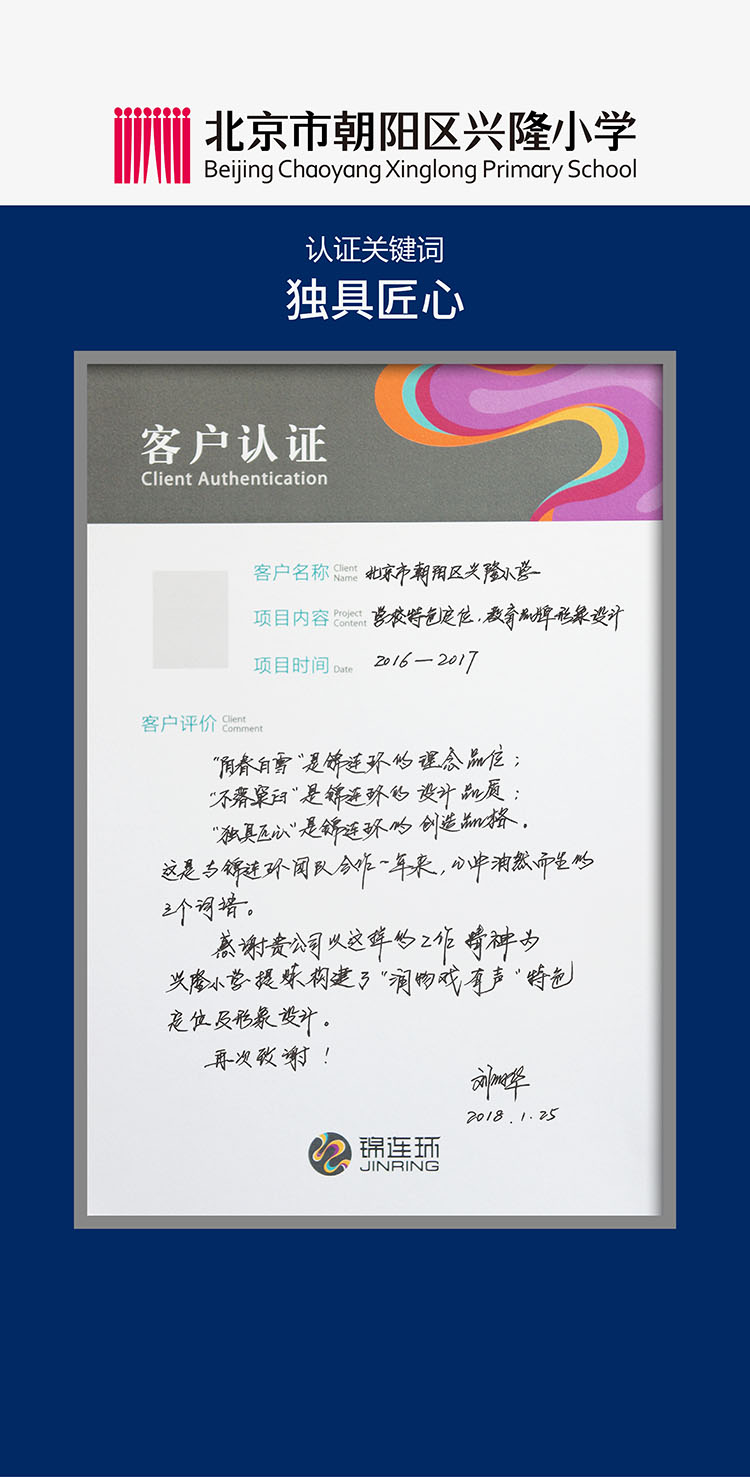 北京市朝阳区兴隆小学
Beijing Chaoyang Xinglong Primary School
认证关键词
独具匠心
客户认证
Client Authentication
客户名称 Client Name 北京市朝阳区兴隆小学
项目内容 Project Content 学校特色定位、教育品牌形象设计
项目时间 Date 2016—2017
客户评价 Client Comment
“阳春白雪”是锦连环的理念品位；
“不落窠臼”是锦连环的设计品质；
“独具匠心”是锦连环的创造品格。
这是与锦连环团队合作一年来，心中油然而生的
三个词语。
感谢贵公司以这样的工作精神为
兴隆小学提炼构建了“润物戏有声”特色
定位及形象设计。
再次致谢！
2018.1.25
锦连环
JINRING